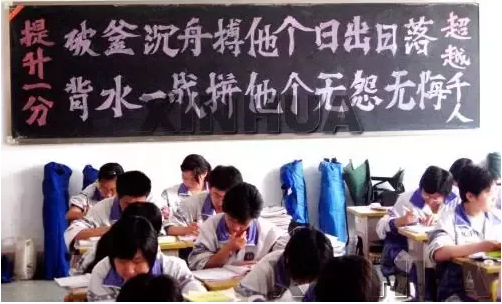 提升一分
破釜沉舟搏他个日出日落
背水一战拼他个无怨无悔
超越千人
XINHUA